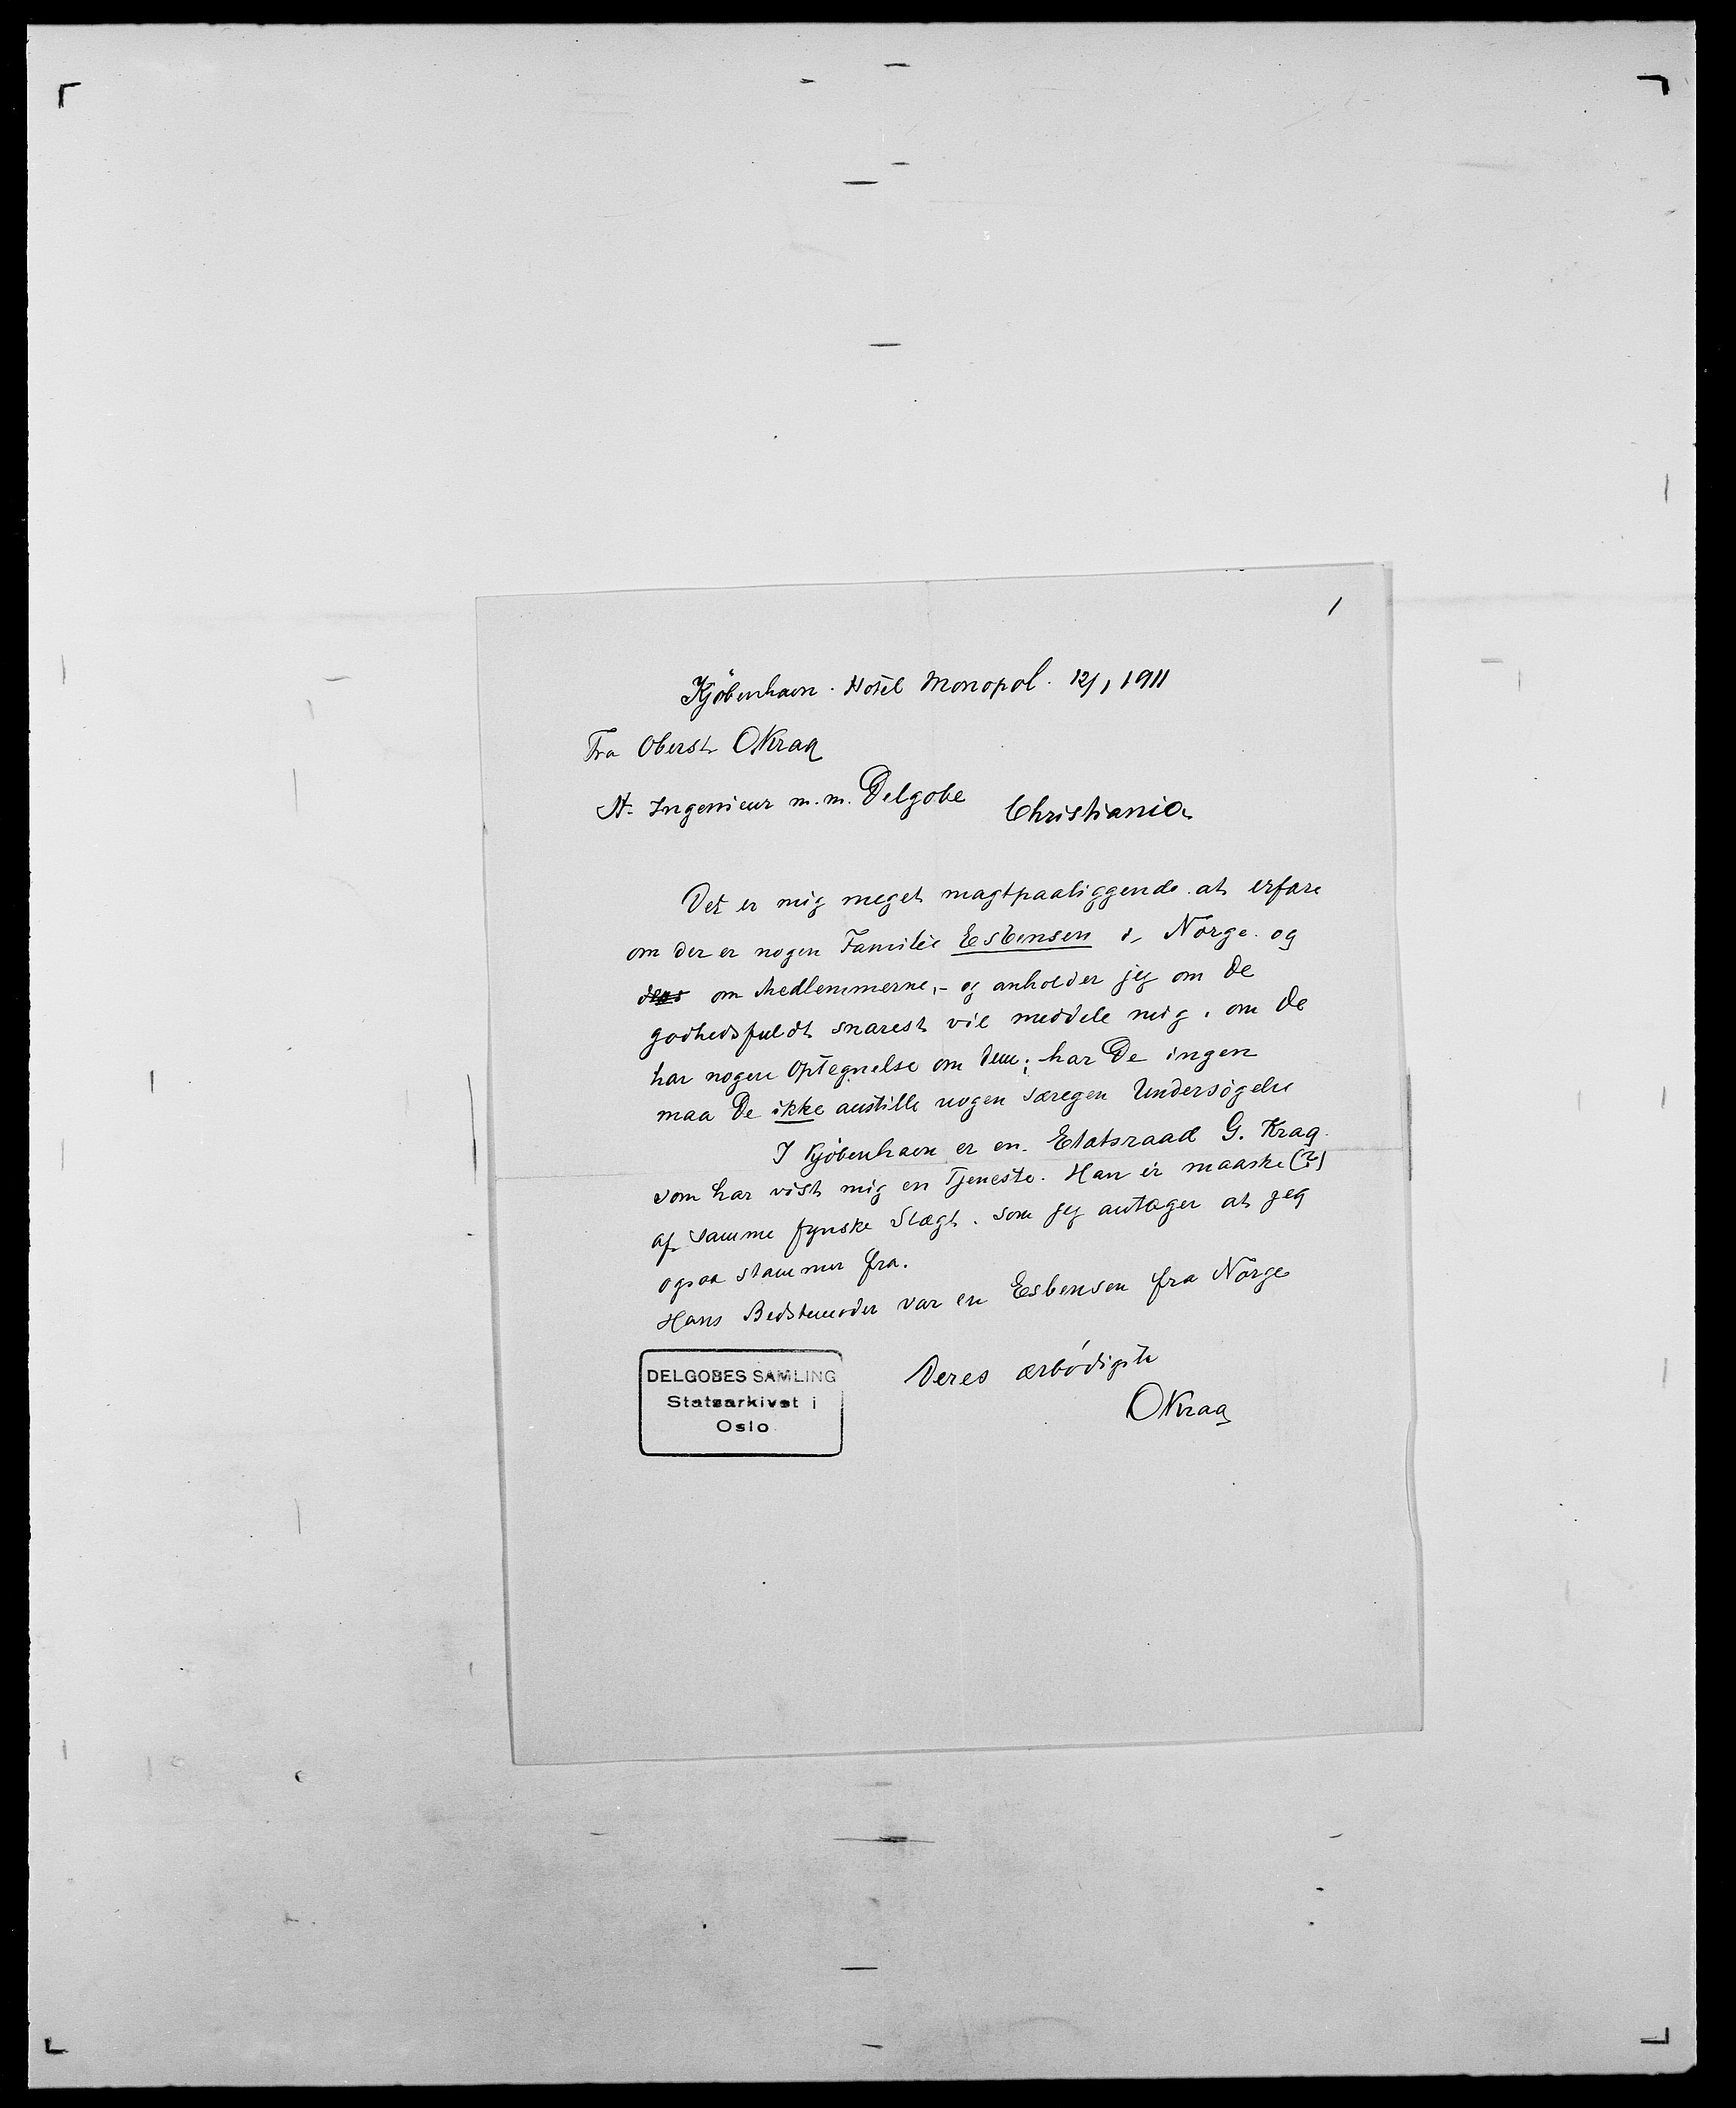 1
Kjöbenhavn. Hotel Monopol. 12/1 1911
Fra Oberst OKrag
Ingenieur m.m. Delgobe Christiania
Det er mig meget magtpaaliggende at erfare
om der er nogen Familie Esbensen i Norge og
om Medlemmerne, - og anholder jeg om De
godhedsfuldt snarest vil meddele mig, om De
har nogen Optegnelse om dem; har De ingen
maa De ikke anstille nogen særegen Undersøgelse
I Kjöbenhavn er en Etatsraad G. Krag
som har vist mig en Tjeneste. Han er maaske (?)
af samme fynske Slægt, som jeg antager at jeg
ogsaa stammer fra.
Hans Bedstemoder var en Esbensen fra Norge
Deres ærbödigste
OKrag
DELGOBES SAMLING
Statsarkivet i
Oslo